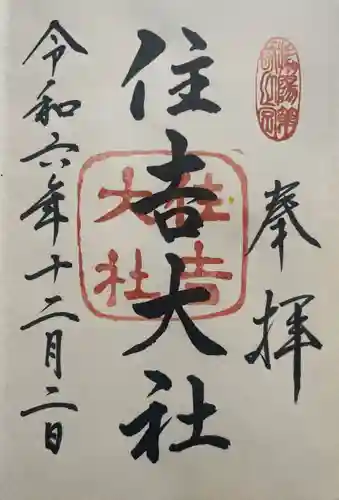 奉拝
住吉大社
住吉
大社
令和六年十二月二日